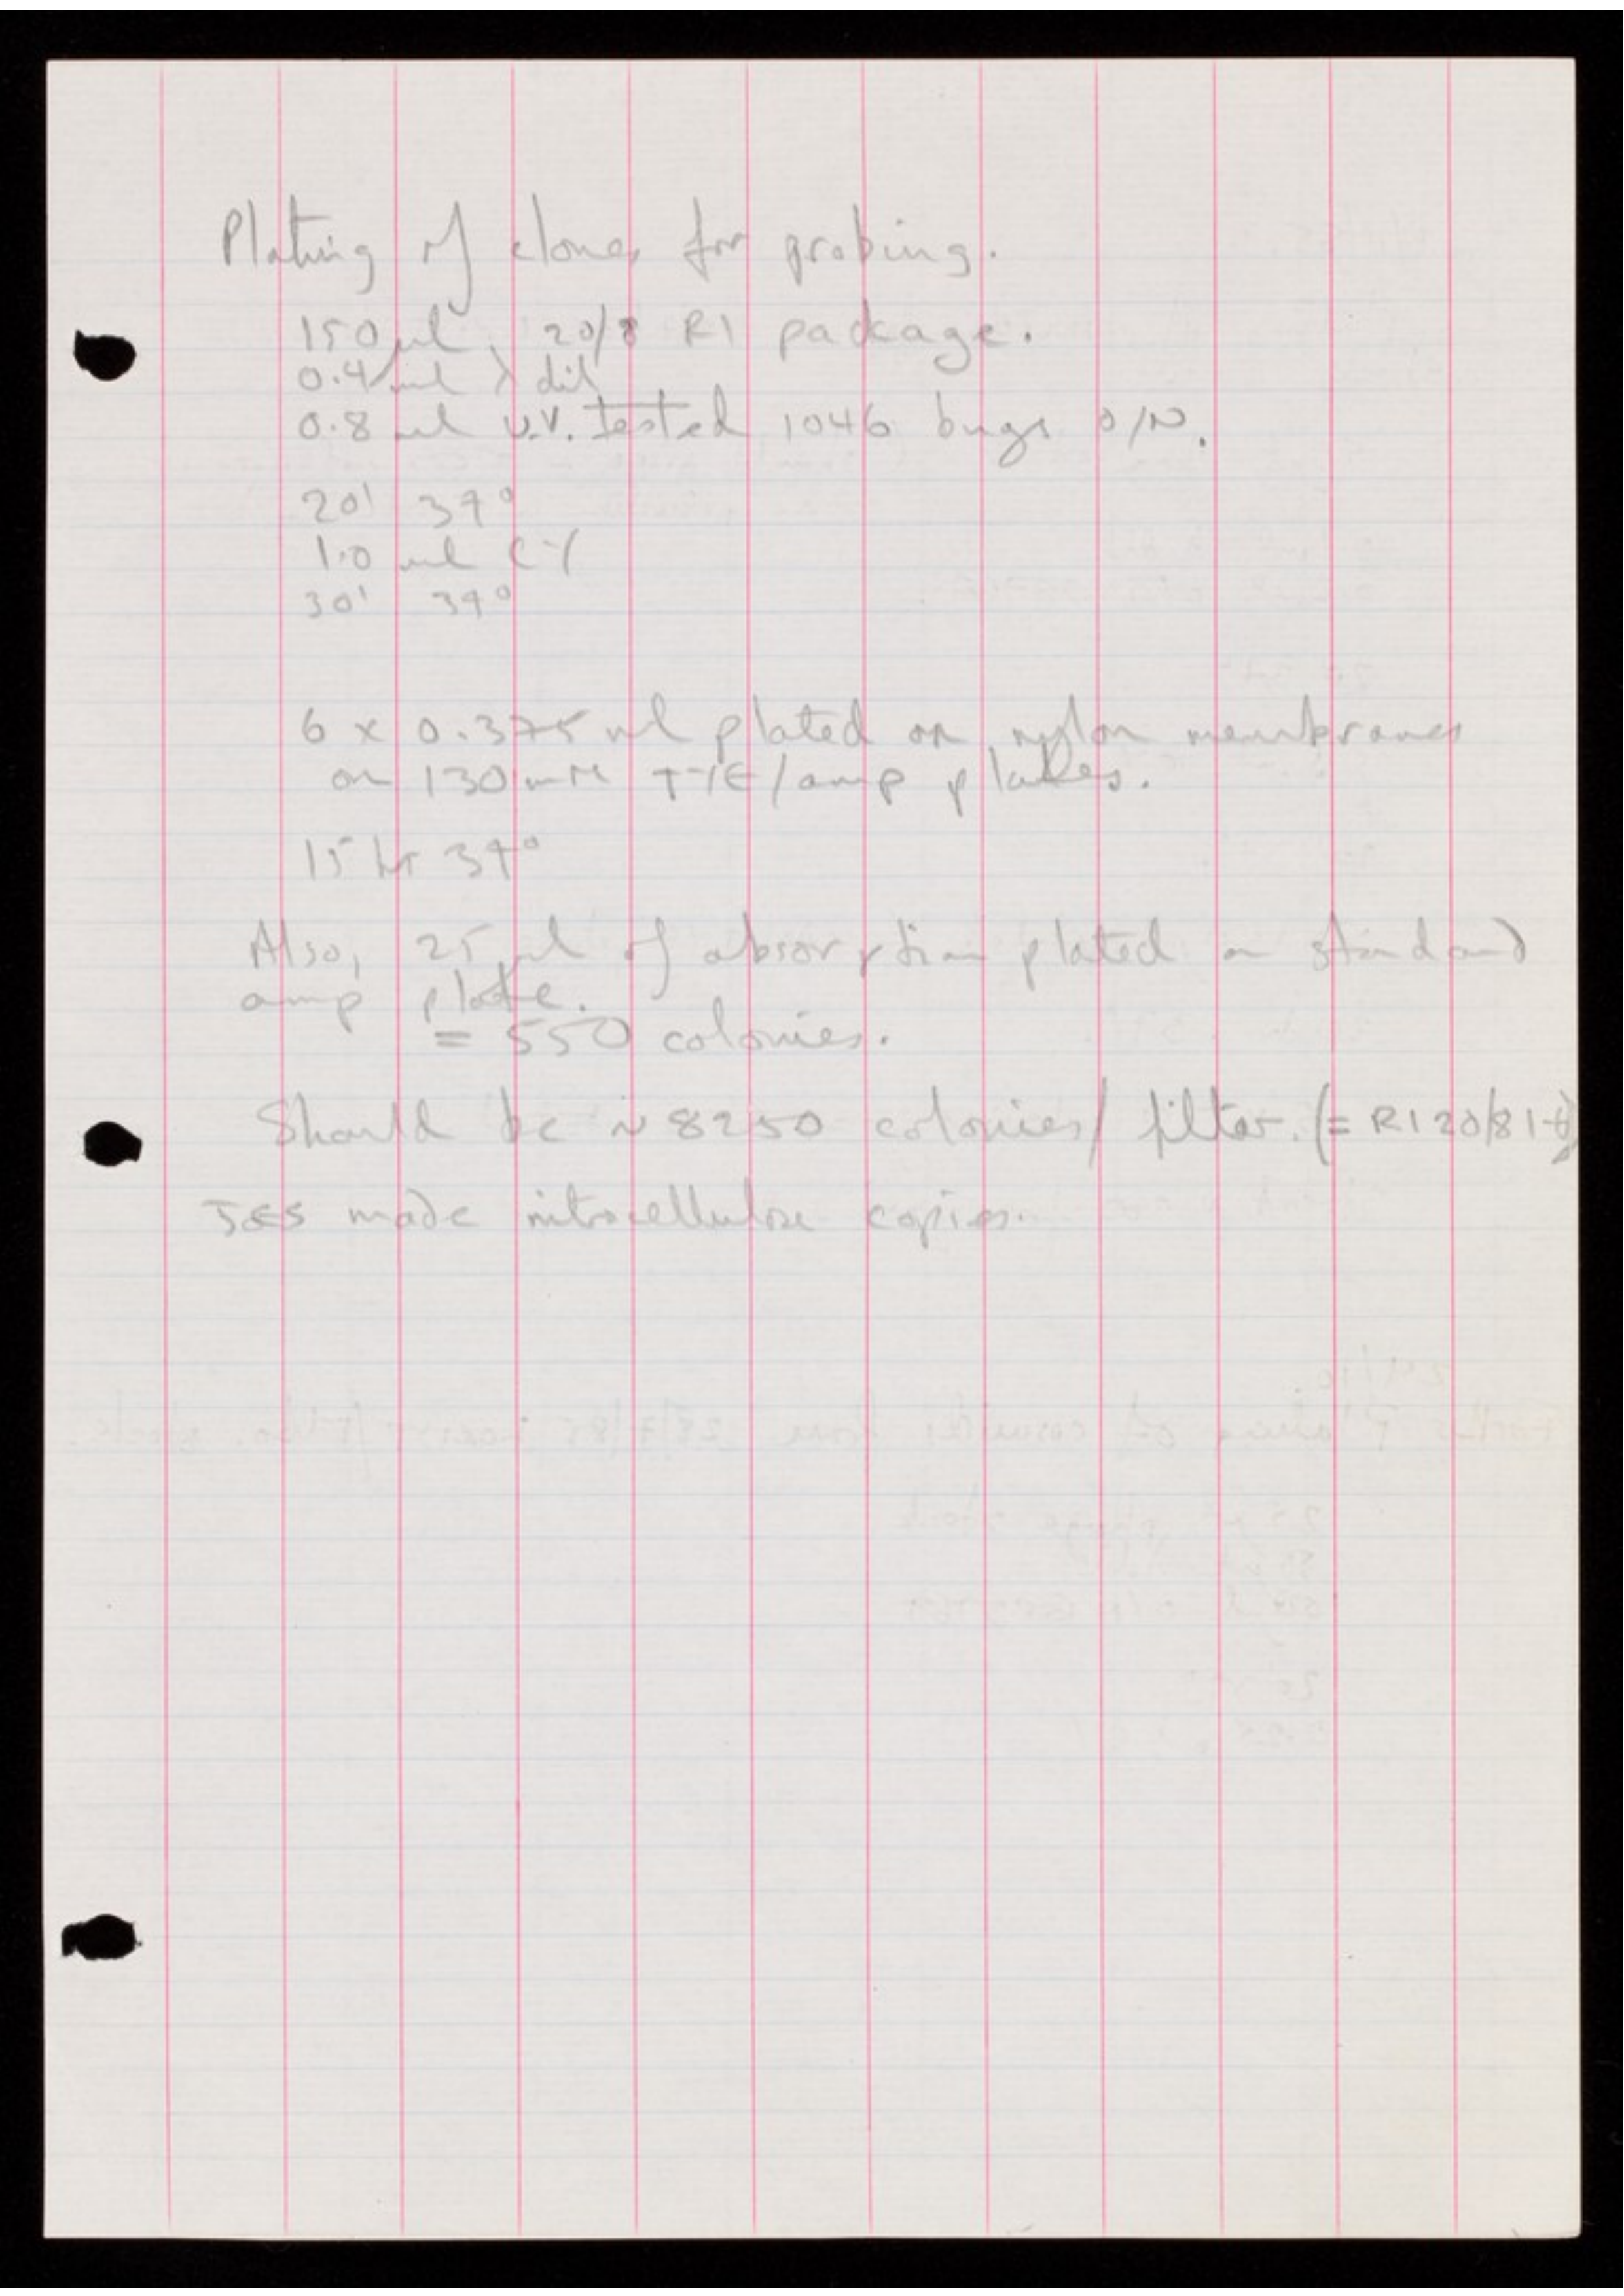 Plating of clones for probing.
150 µl 20/8 R1 package.
0.4 ml λ dil
0.8 ml U.V. tested 1046 bugs O/N.
20' 37°
1.0 ml CY
30' 37°
6 x 0.375 ml plated on nylon membranes
on 130 mM TYE/amp plates.
15 hr 37°
Also, 25 µl of absorption plated on standard
amp plate.
= 550 colonies.
Should be ~ 8250 colonies/filter. (= R1 20/8 1-6)
JES made nitrocellulose copies.